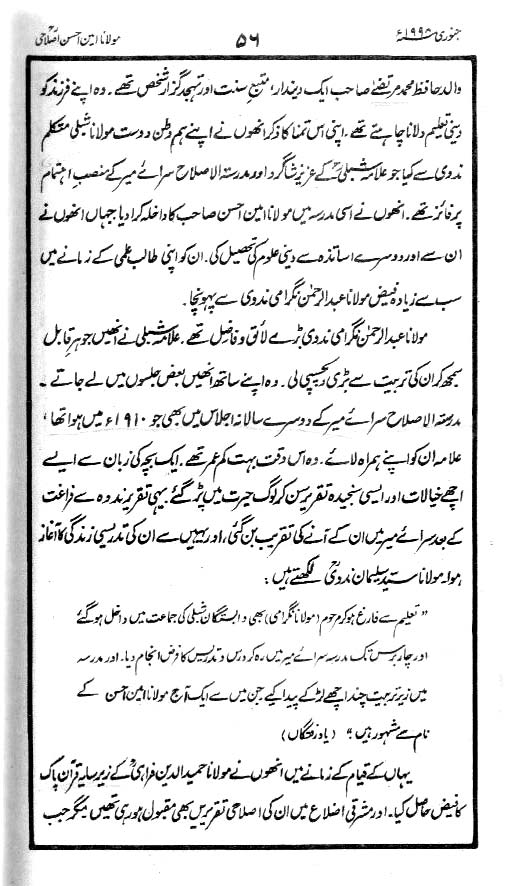 جنوری ۱۹۹۸ء
۵۶
مولانا امین احسن اصلاحیؒ
والد حافظ محمد مرتضیٰ صاحب ایک دیندار، متبع سنت اور تہجد گزار شخص تھے۔ وہ اپنے فرزند کو
دینی تعلیم دلانا چاہتے تھے۔ اپنی اس تمنا کا ذکر انھوں نے اپنے ہم وطن دوست مولانا شبلی متکلم
ندوی سے کیا جو علامہ شبلیؒ کے عزیز شاگرد اور مدرستہ الاصلاح سرائے میر کے منصب اہتمام
پر فائز تھے۔ انھوں نے اسی مدرسہ میں مولانا امین احسن صاحب کا داخلہ کرا دیا جہاں انھوں نے
ان سے اور دوسرے اساتذہ سے دینی علوم کی تحصیل کی۔ ان کو اپنی طالب علمی کے زمانے میں
سب سے زیادہ فیض مولانا عبدالرحمٰن نگرامی ندوی سے پہونچا۔
مولانا عبدالرحمٰن نگرامی ندوی بڑے لائق و فاضل تھے۔ علامہ شبلیؒ نے انھیں جوہر قابل
سمجھ کر ان کی تربیت سے بڑی دلچسپی لی۔ وہ اپنے ساتھ انھیں بعض جلسوں میں لے جاتے۔
مدرستہ الاصلاح سرائے میر کے دوسرے سالانہ اجلاس میں بھی جو ۱۹۱۰ء میں ہوا تھا،
علامہ ان کو اپنے ہمراہ لائے۔ وہ اس وقت بہت کم عمر تھے۔ ایک بچہ کی زبان سے ایسے
اچھے خیالات اور ایسی سنجیدہ تقریر سن کر لوگ حیرت میں پڑ گئے۔ یہی تقریر ندوہ سے فراغت
کے بعد سرائے میر میں ان کے آنے کی تقریب بن گئی، اور یہیں سے ان کی تدریسی زندگی کا آغاز
ہوا۔ مولانا سید سلیمان ندویؒ لکھتے ہیں:
"تعلیم سے فارغ ہو کر مرحوم (مولانا نگرامی) بھی وابستگان شبلی کی جماعت میں داخل ہو گئے
اور چار برس تک مدرسہ سرائے میر میں رہ کر درس و تدریس کا فرض انجام دیا۔ اور مدرسہ
میں زیر تربیت چند اچھے لڑکے پیدا کیے جن میں سے ایک آج مولانا امین احسن کے
نام سے مشہور ہیں۔" (یاد رفتگاں)
یہاں کے قیام کے زمانے میں انھوں نے مولانا حمید الدین فراہیؒ کے زیر سایہ قرآن پاک
کا فیض حاصل کیا۔ اور مشرقی اضلاع میں ان کی اصلاحی تقریریں بھی مقبول ہو رہی تھیں مگر جب